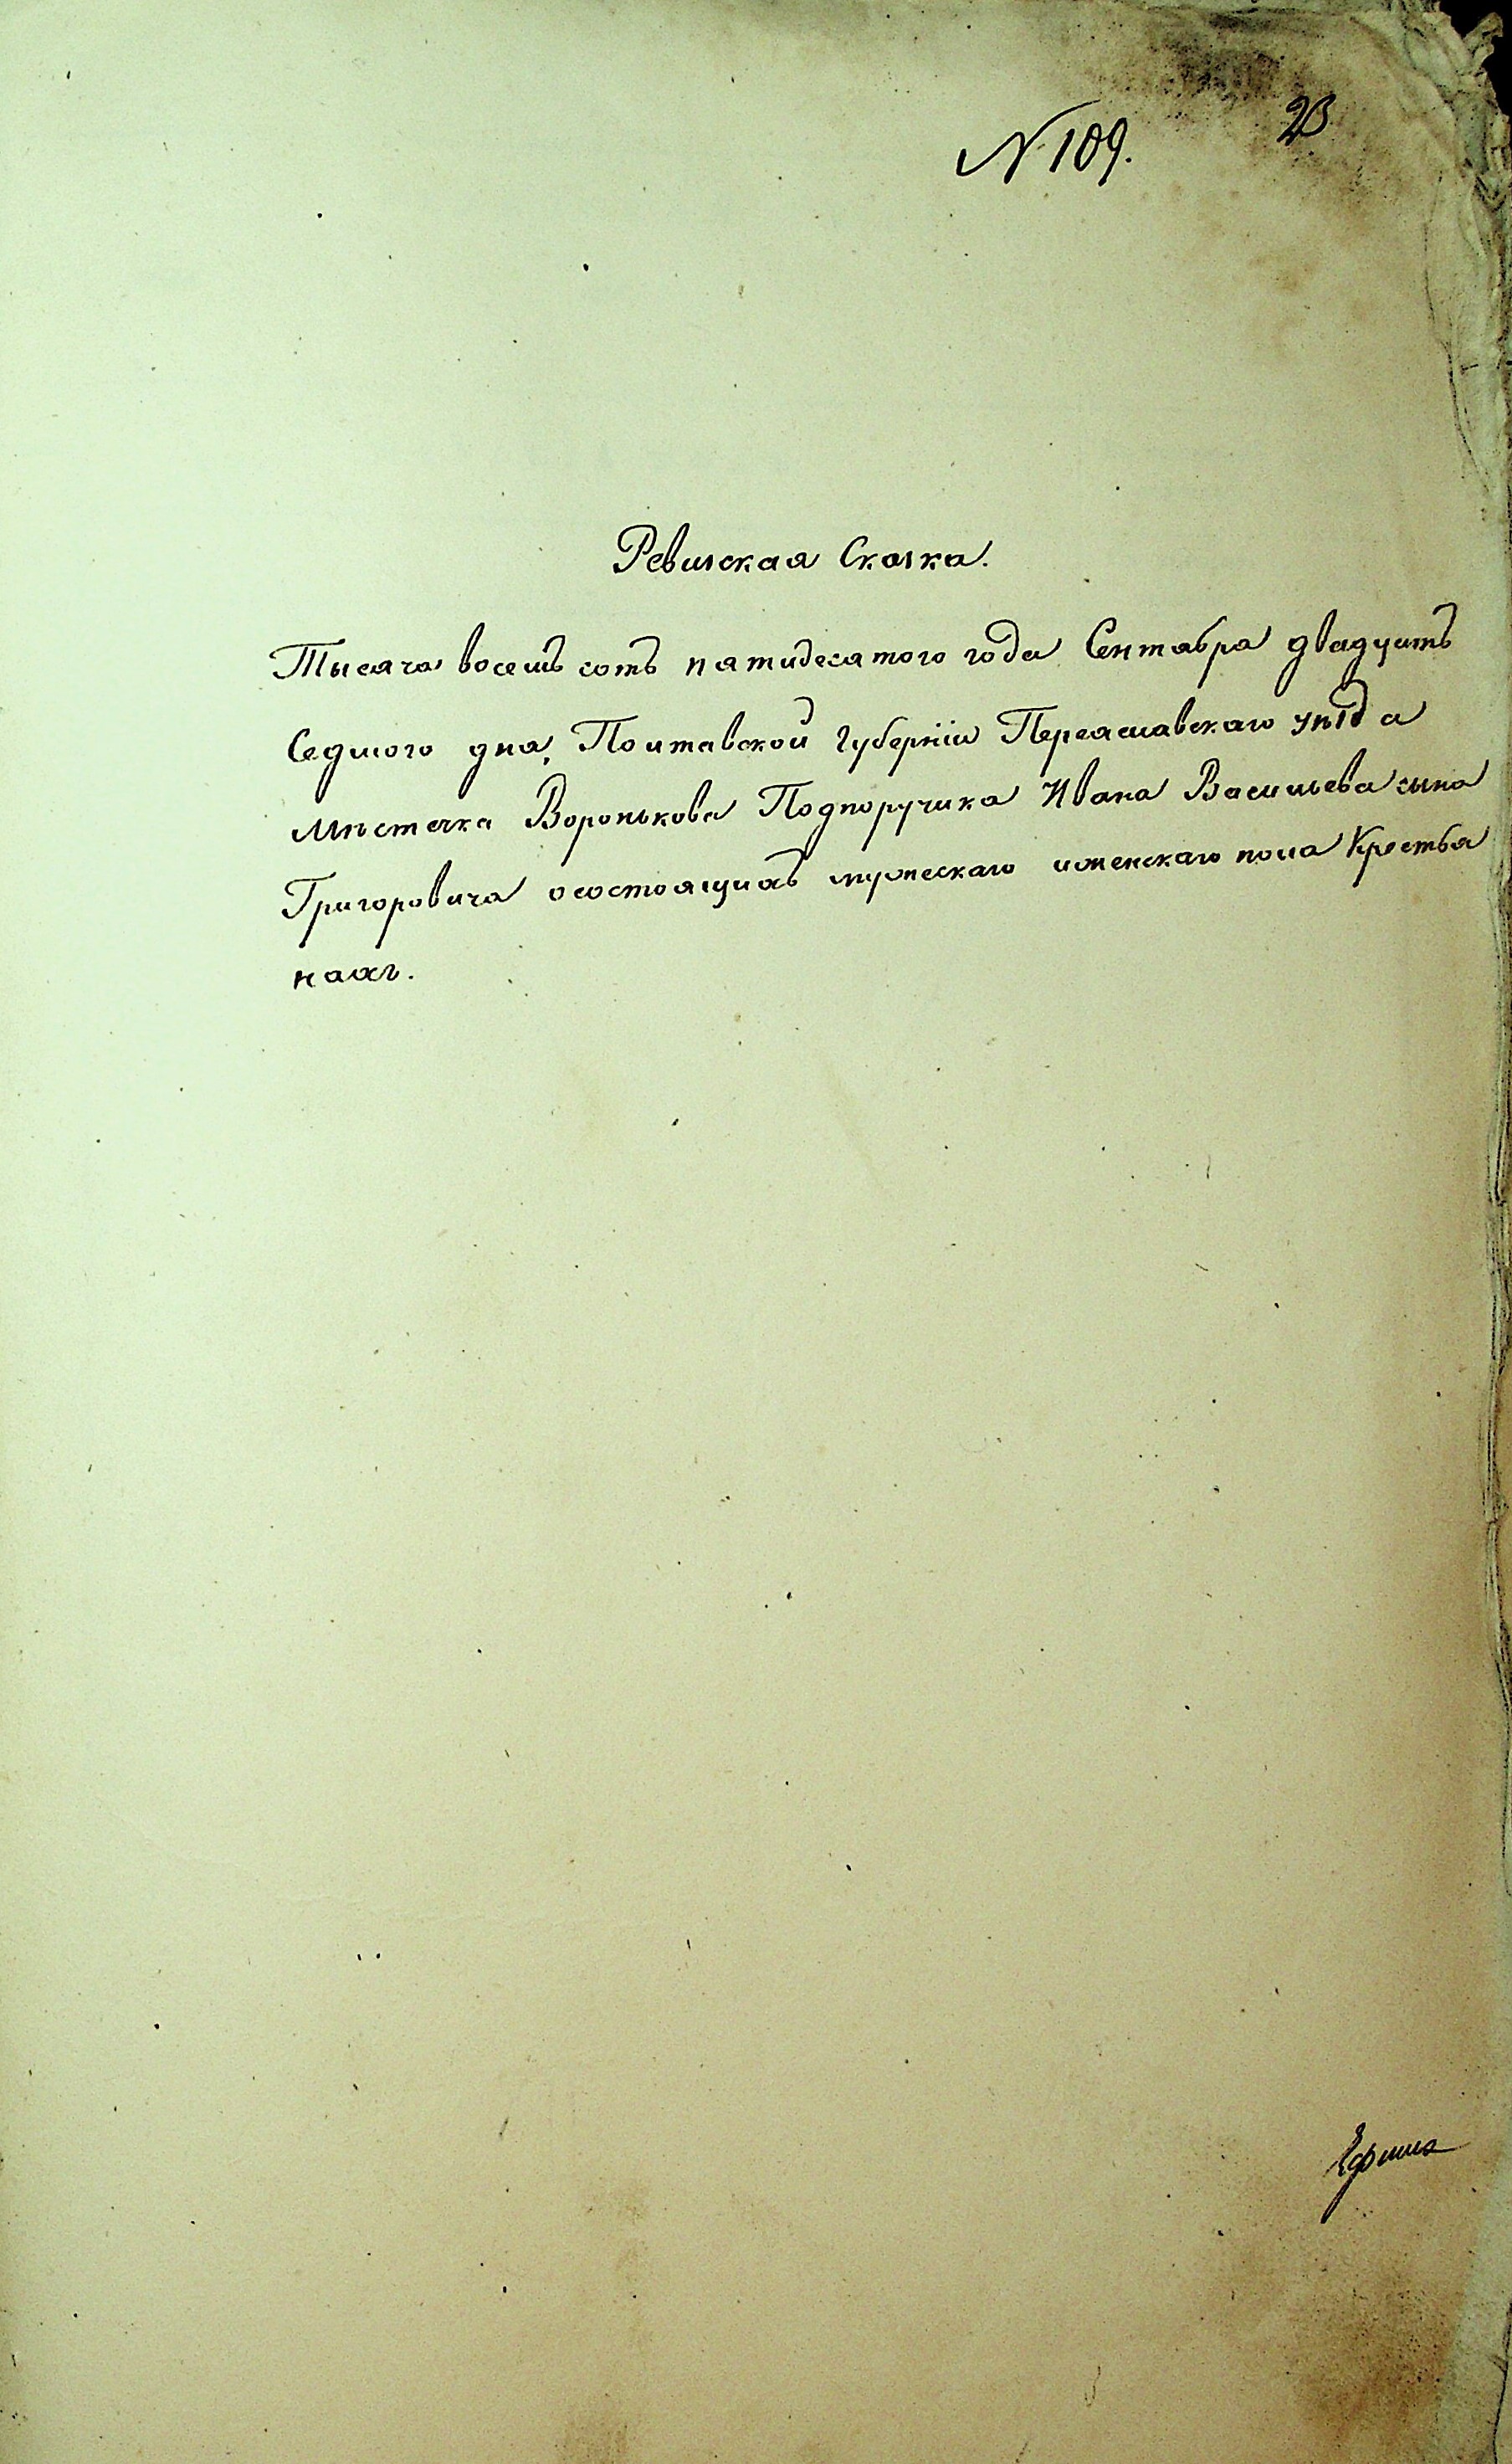 N 109.
23
Ревиская Скаска.
Тысяча восемь сотъ пятидесятого года Сентября двадцать
Седмого дня, Полтавской губерніи Переяславскаго уѣзда
Мѣстечка Воронькова Подпоручика Ивана Васильева сына
Григоровича о состоящихъ мужескаго и женскаго пола Крестья
нахъ.